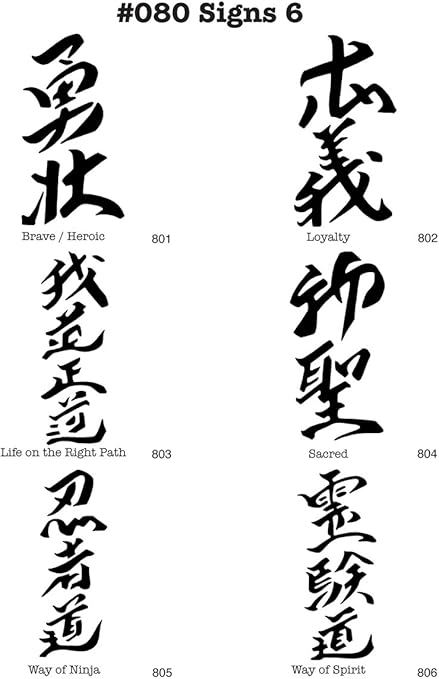 #080 Signs 6
勇壮
Brave / Heroic 801
義
Loyalty 802
我
正道
Life on the Right Path 803
神聖
Sacred 804
忍者道
Way of Ninja 805
霊験道
Way of Spirit 806